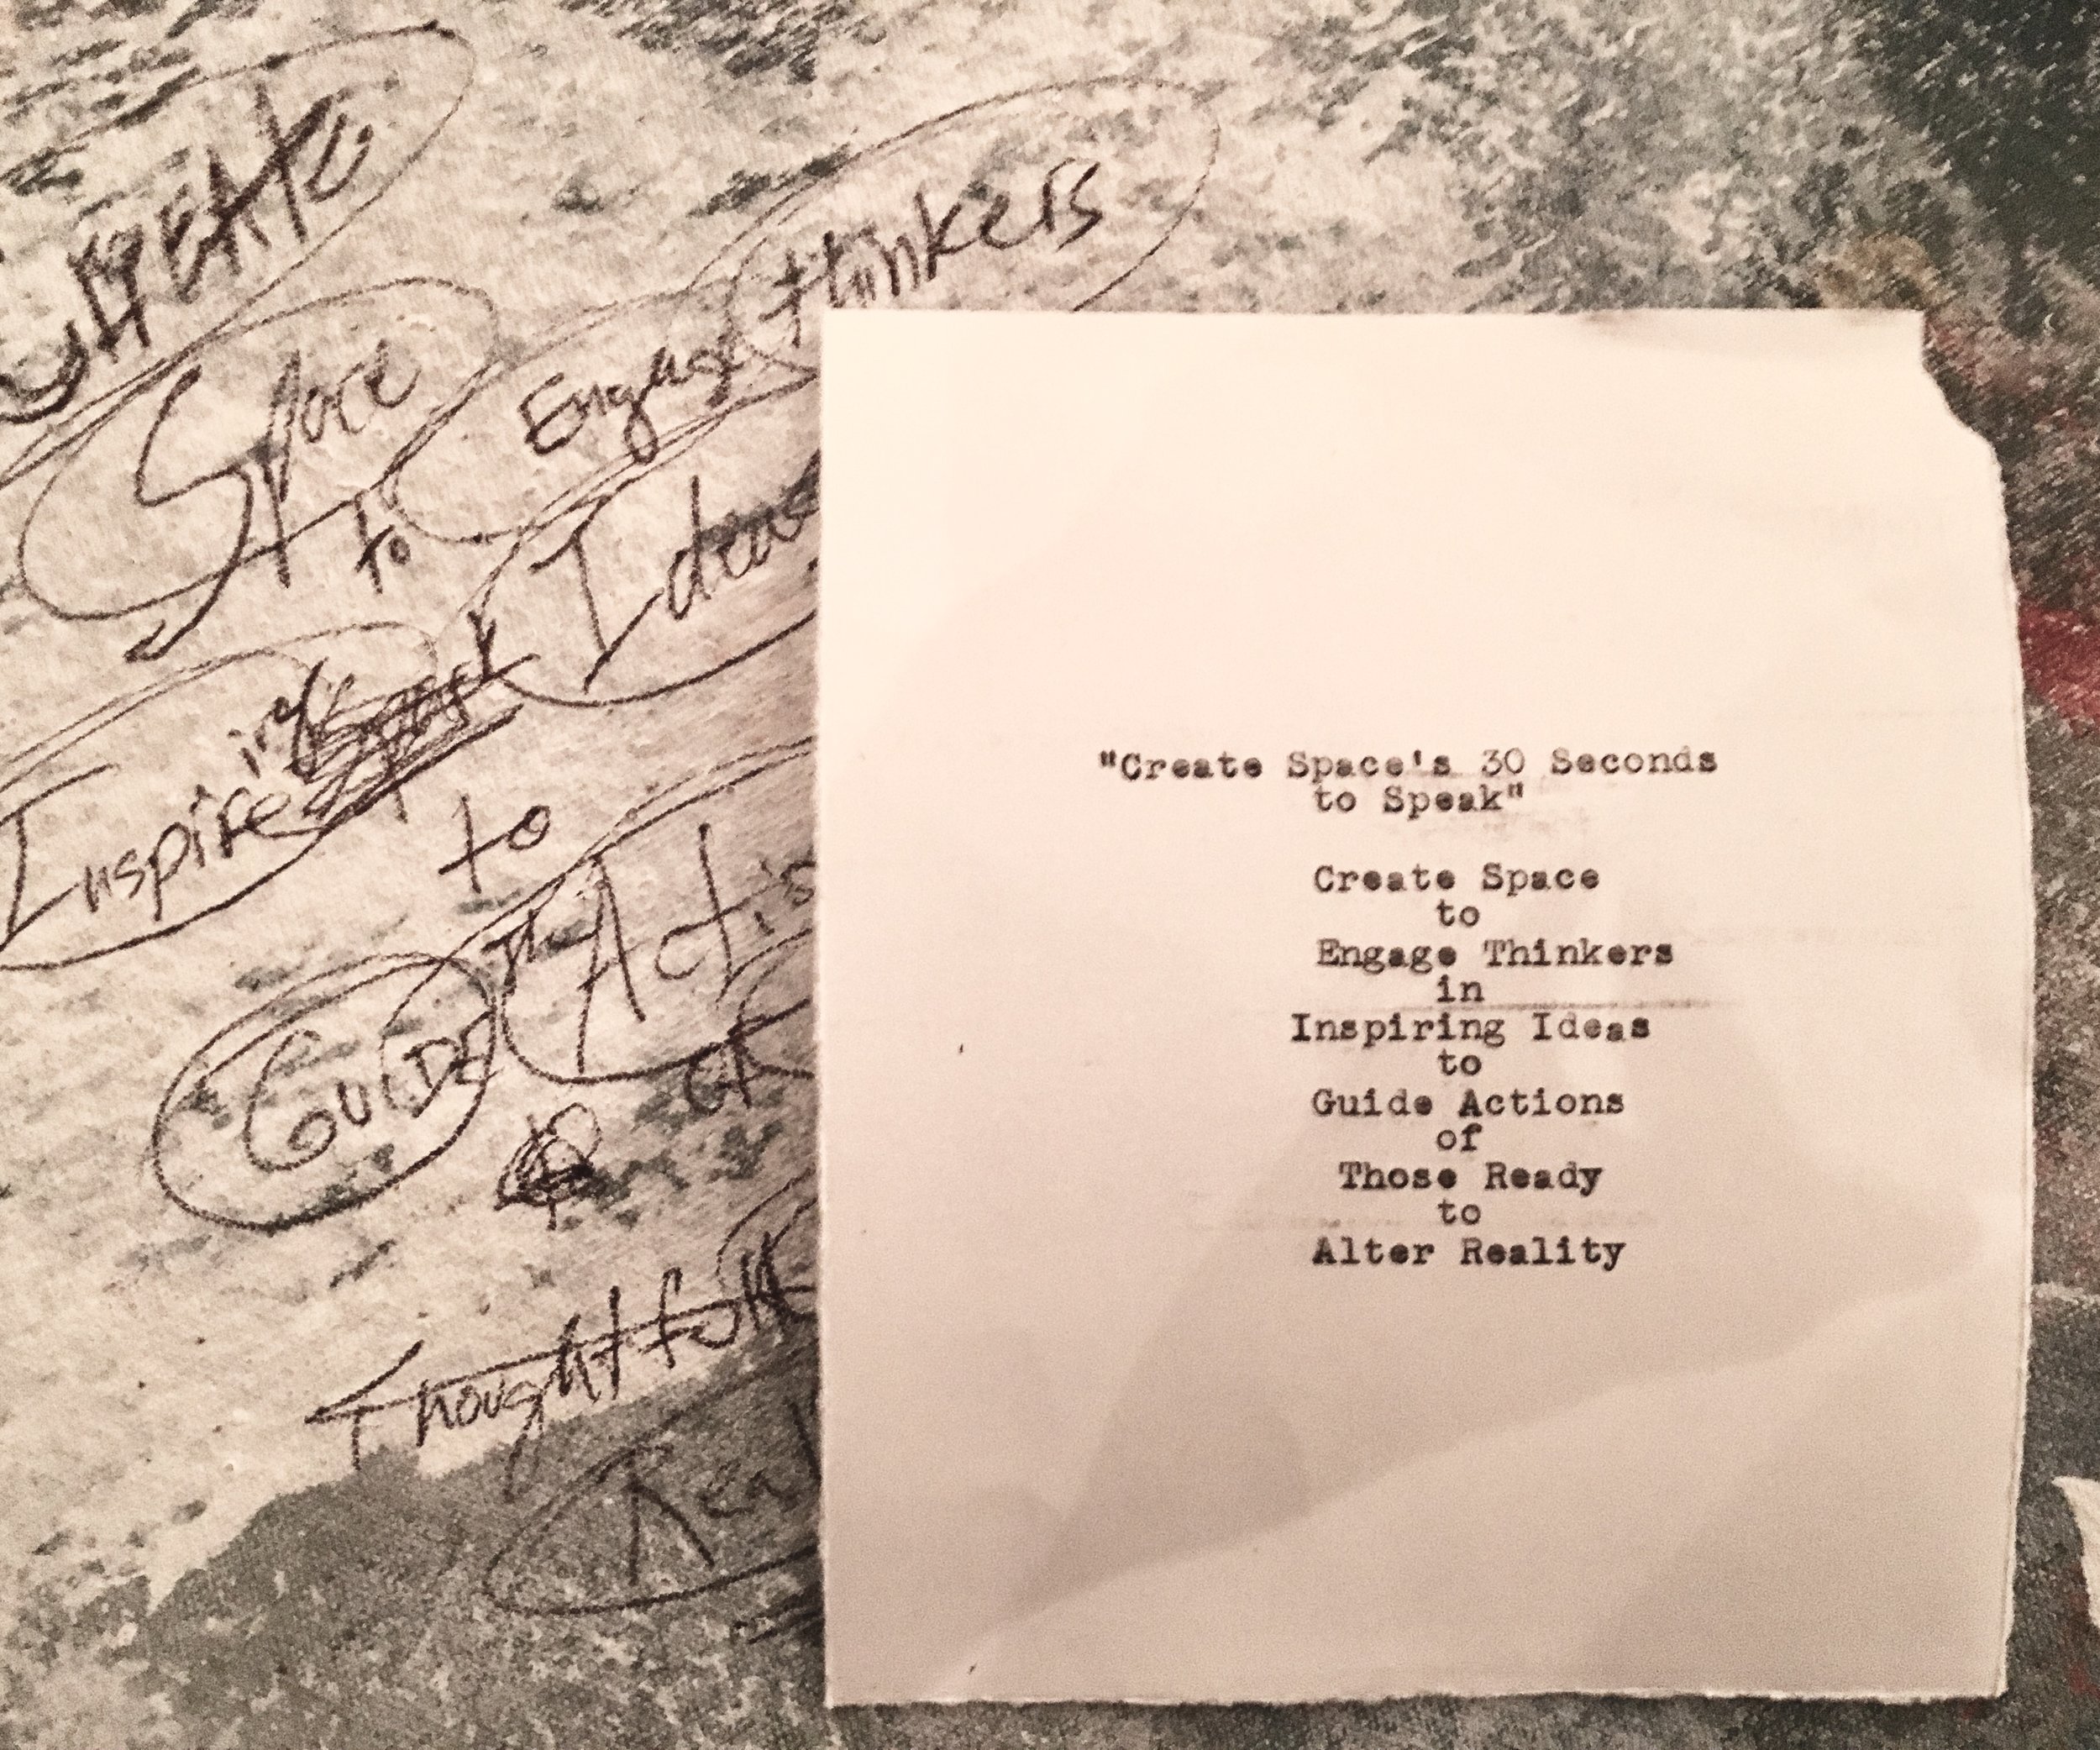 CREATE
Space
to
Engage
thinkers
Ideas
Inspireing
to
GUIDE
The
of
Thoughtful
"Create Space's 30 Seconds
to Speak"
Create Space
to
Engage Thinkers
in
Inspiring Ideas
to
Guide Actions
of
Those Ready
to
Alter Reality